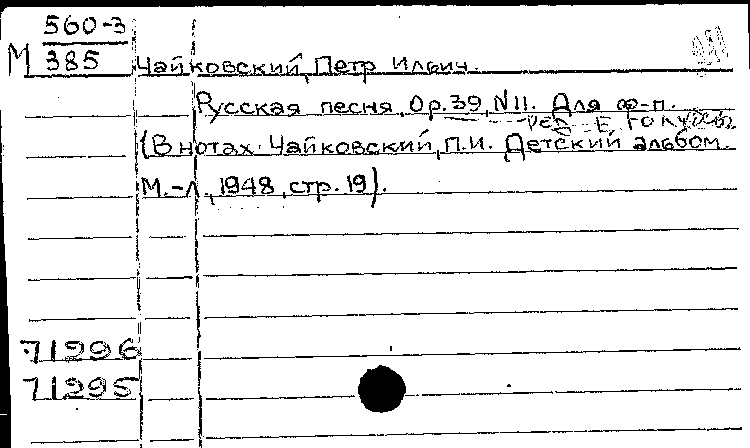 560-3
М 385 Чайковский, Петр Ильич.
Русская песня. Ор.39, N11. Для ф-п.
ред. Е.
(В нотах: Чайковский, П.И. Детский альбом.
М.-Л., 1948, стр. 19).
71296
71295